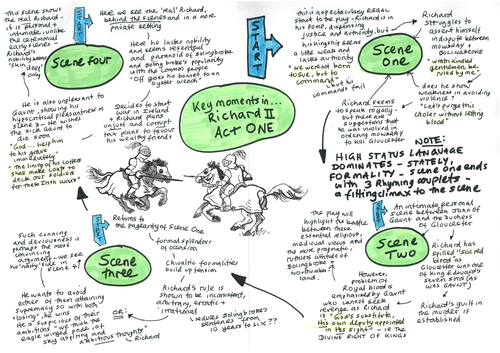 Key moments in...
Richard II
Act ONE
START
Scene one
This is a spectacularly regal
start to the play - Richard is in
his pomp, dispensing
justice and authority, but
his kingship seems
like words and
lacks authority
"we were not born
to sue, but to
command"
but his
commands fail
Richard
struggles to
assert himself
in dispute between
mowbray +
Bolingbroke
"wrath kindled
gentlemen, be
ruled by me"
does he show
weakness in avoiding
violence?
"Let's purge this
choler without letting
blood"
Richard seems
to speak royally -
but there are
suggestions that
he was involved in
ordering mowbray
to kill Gloucester
NOTE:
HIGH STATUS LANGUAGE
DOMINATES - STATELY,
FORMALITY - scene one ends
with 3 rhyming couplets -
a fitting climax to the scene
START
Scene Two
An intimate personal
scene between John of
Gaunt and the Duchess
of Gloucester
Richard has
spilled "sacred
blood" as
Gloucester was
one of King Edward's
seven sons (as
was GAUNT)
Richard's guilt in
the murder is
established
However,
problem of
Royal blood is
emphasised by Gaunt
who cannot seek
revenge as Richard
is "God's substitute,
His own deputy appointed
in His sight" - ie THE
DIVINE RIGHT OF KINGS
The play will
highlight the battle
between these
essential religious,
medieval views and
the more pragmatic,
ruthless attitude of
Bolingbroke +
Northumber-
land.
START
Scene three
Returns to
the pageantry of Scene One
formal splendour
of occasion
Chivalric formalities
build up tension
Richard's rule is
shown to be inconsistent,
arbitrary, erratic +
irrational
reduces Bolingbroke's
sentence from
10 years to six??
Such cunning
and deviousness is
perhaps the most
convincing
argument - we see
his nasty side in
scene 4!
He wants to avoid
either of them attaining
supremacy so with both
"losing", he wins
He is suspicious of their
ambitions "we think the
eagle winged pride of
sky aspiring and
ambitious thoughts"
OR:
Richard
START
Scene four
This scene shows
the real Richard -
it is personal +
intimate, unlike
the ceremonial
early scenes -
Richard's
nobility was
'skin
deep'
only
Here we see the 'real' Richard,
behind the scenes and in a more
private setting
Here he lacks nobility
and seems resentful
and paranoid of Bolingbroke
and Bolingbroke's popularity
with the common people
"Off goes his bonnet to an
oyster wench"
Decides to start
war in Ireland
+ Richard plans
unjust and corrupt
tax plans to favour
his wealthy friends
He is also unpleasant to
Gaunt, showing his
hypocritical pleasantness in
scene 3 - he wishes
the sick Gaunt to
die soon
"God... help him
to his grave
immediately"
"the lining of his coffers
shall make coats to
deck our soldiers
for these Irish wars"